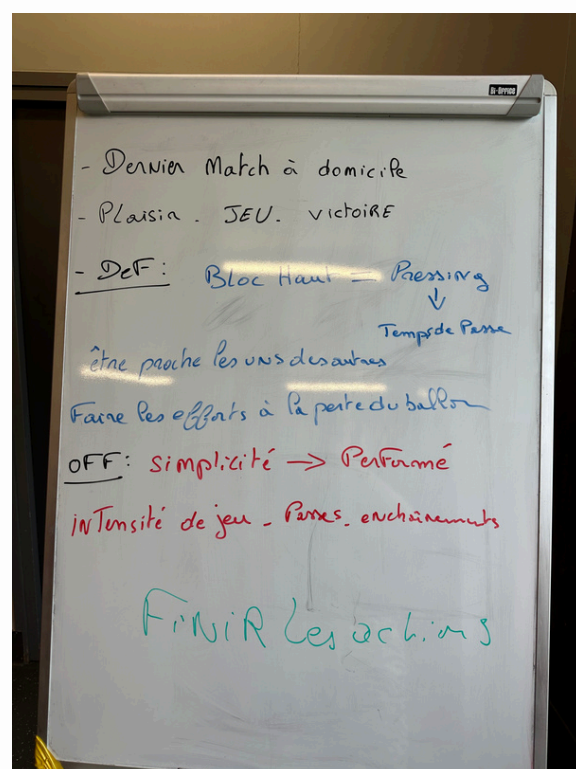 Bi-Office
- Dernier Match à domicile
- Plaisir. JEU. victoiRE
- DeF: Bloc Haut = Pressing
↓
Temps de Passe
être proche les uns des autres
Faire les efforts à la perte du ballon
OFF: simplicité → Performé
inTensité de jeu - Passes. enchainements
FiNiR les actions